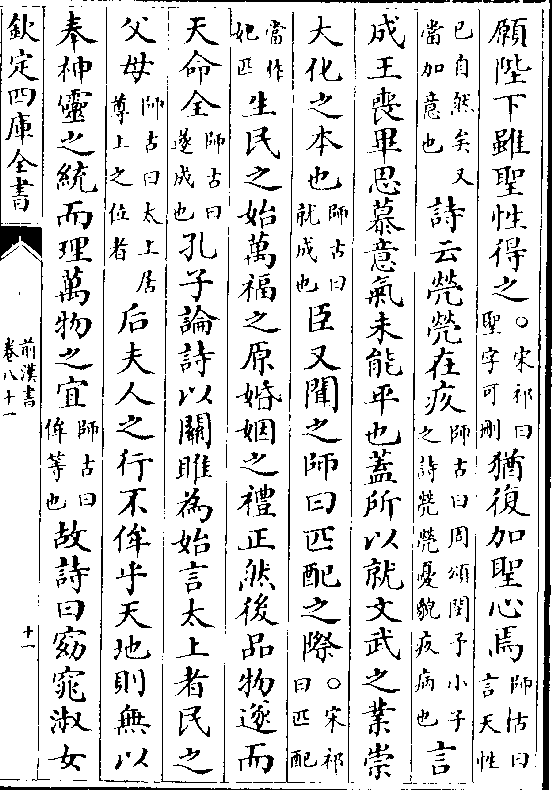 願陛下雖聖性得之○宋祁曰聖字可刪猶復加聖心焉師古曰言天性
已自然矣又當加意也詩云煢煢在疚師古曰周頌閔予小子之詩煢煢憂貌疚病也言
成王喪畢思慕意氣未能平也蓋所以就文武之業崇
大化之本也師古曰就成也臣又聞之師曰匹配之際○宋祁曰匹配
當作妃匹生民之始萬福之原婚姻之禮正然後品物遂而
天命全師古曰遂成也孔子論詩以關雎為始言太上者民之
父母師古曰太上居尊上之位者后夫人之行不侔乎天地則無以
奉神靈之統而理萬物之宜師古曰侔等也故詩曰窈窕淑女
欽定四庫全書
前漢書
卷八十一
十一